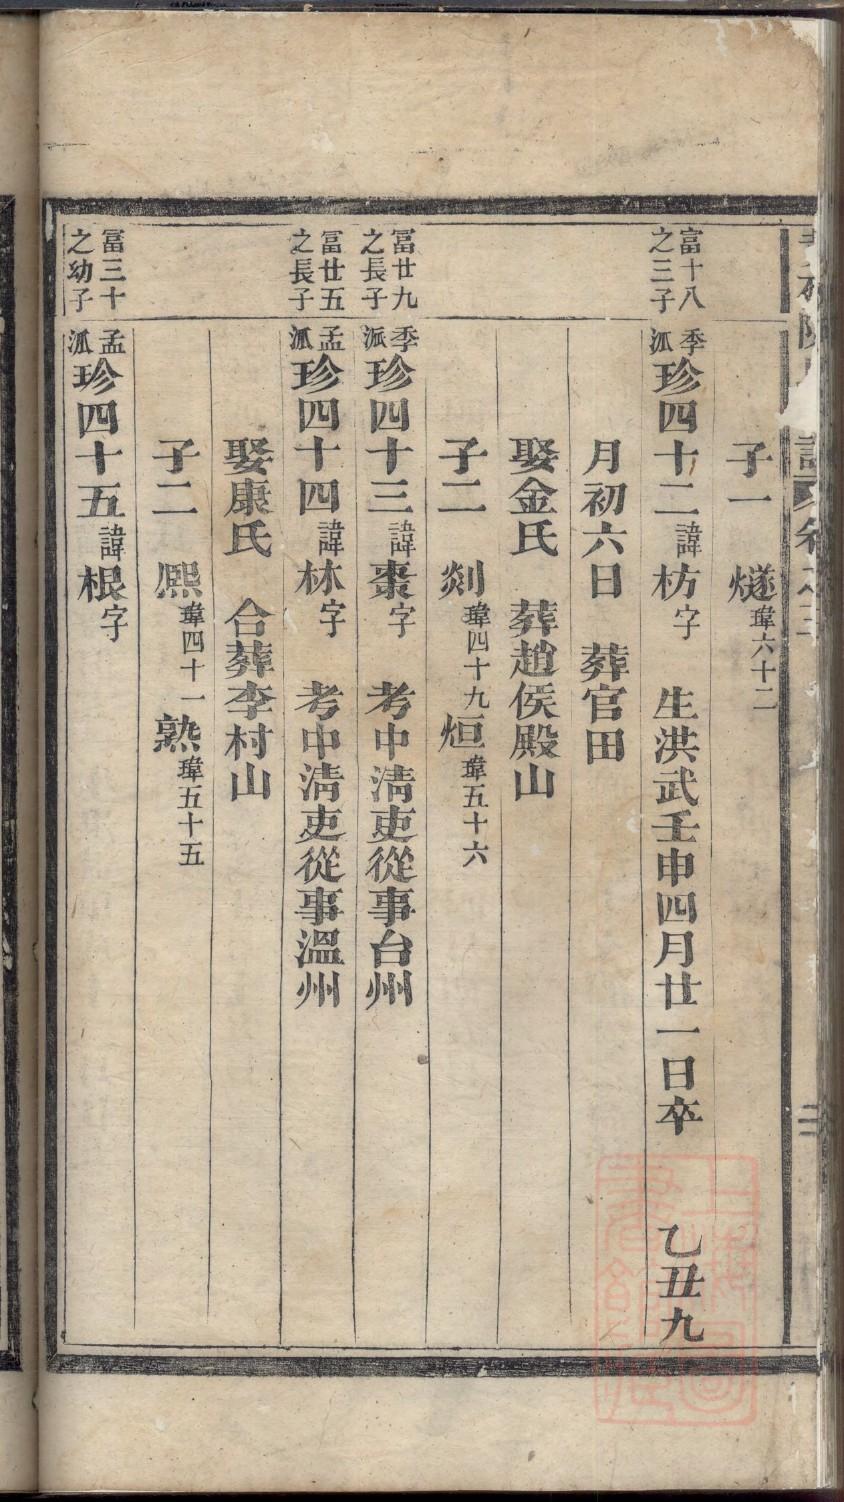 子一 燧瑋六十二
富十八之三子 季派珍四十二諱枋字 生洪武壬申四月廿一日卒 乙丑九
月初六日 葬官田
娶金氏 葬趙侯殿山
子二 剡瑋四十九 烜瑋五十六
冨廿九之長子 季派珍四十三諱棗字 考中淸吏從事台州
冨廿五之長子 孟派珍四十四諱林字 考中淸吏從事溫州
娶康氏 合葬李村山
子二 熈瑋四十一 熟瑋五十五
冨三十之幼子 孟派珍四十五諱根字